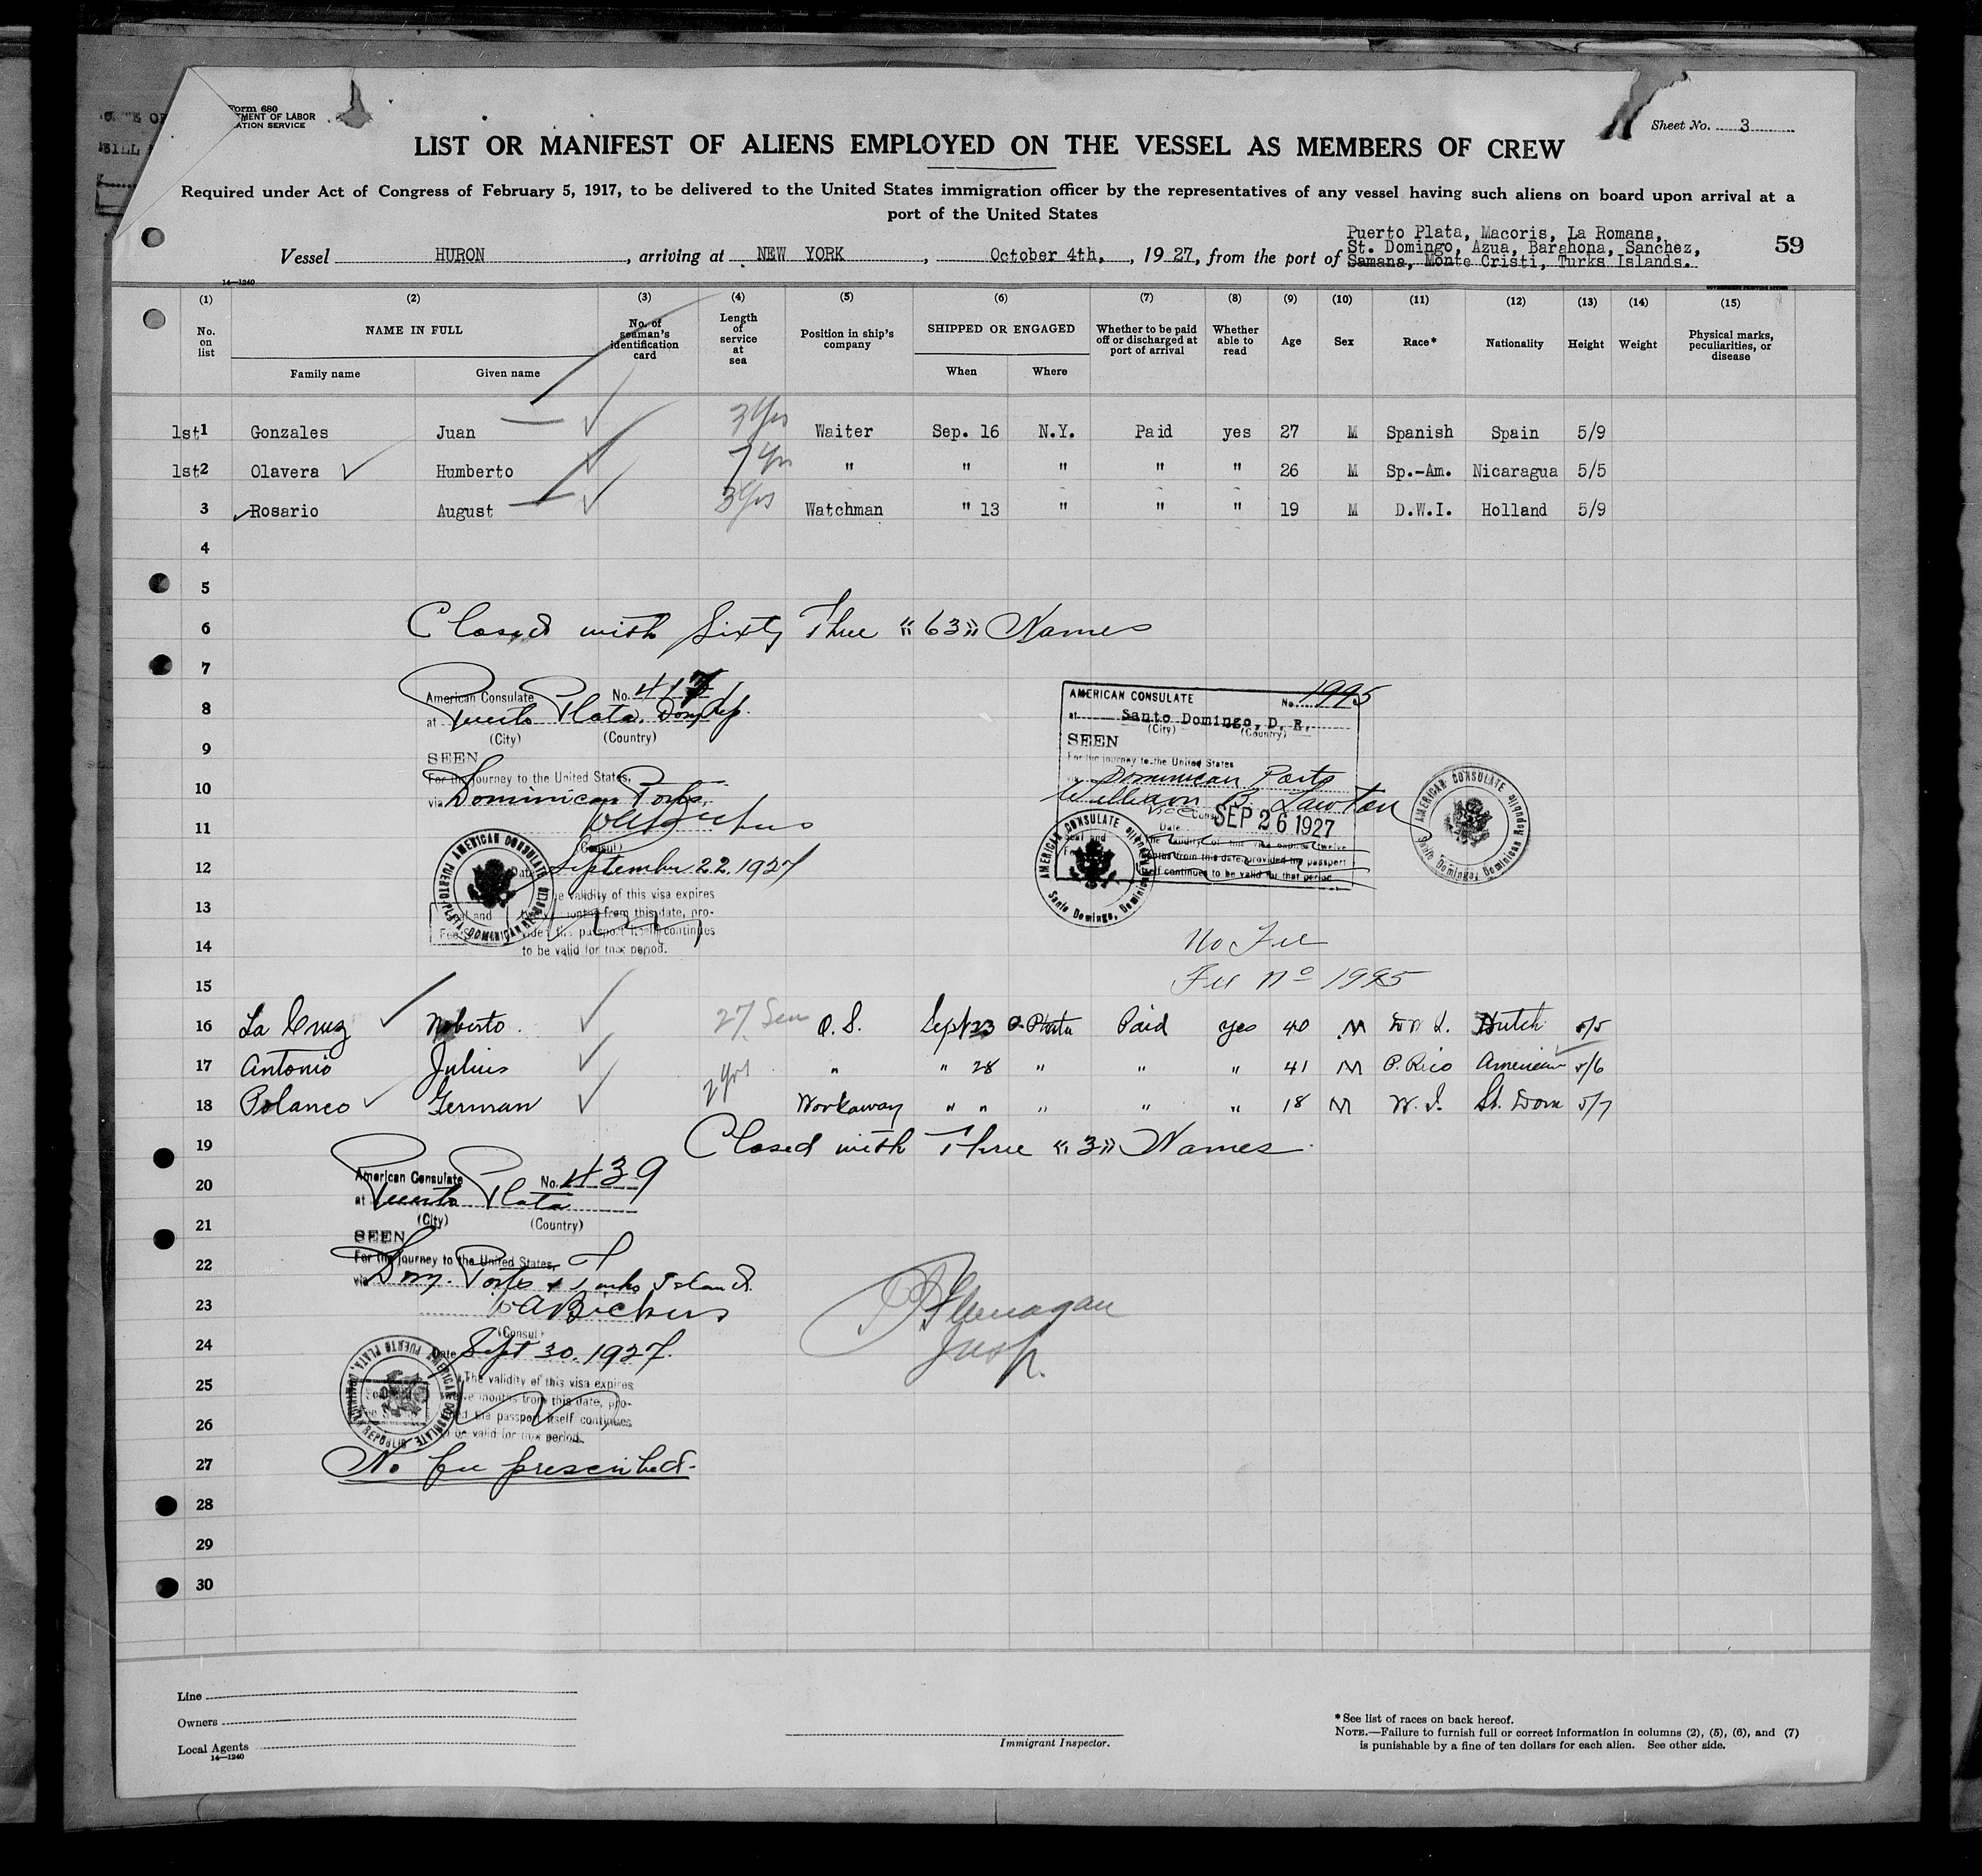 Form 680
TMENT OF LABOR
ATION SERVICE
Sheet No. 3
LIST OR MANIFEST OF ALIENS EMPLOYED ON THE VESSEL AS MEMBERS OF CREW
Required under Act of Congress of February 5, 1917, to be delivered to the United States immigration officer by the representatives of any vessel having such aliens on board upon arrival at a
port of the United States
Puerto Plata, Macoris, La Romana,
St. Domingo, Azua, Barahona, Sanchez,
Vessel HURON, arriving at NEW YORK, October 4th, 1927, from the port of Samana, Monte Cristi, Turks Islands.
59
14—1240
(1) (2) (3) (4) (5) (6) (7) (8) (9) (10) (11) (12) (13) (14) (15)
No. on list NAME IN FULL No. of seaman's identification card Length of service at sea Position in ship's company SHIPPED OR ENGAGED Whether to be paid off or discharged at port of arrival Whether able to read Age Sex Race* Nationality Height Weight Physical marks, peculiarities, or disease
Family name Given name When Where
1st 1 Gonzales Juan 3 yrs Waiter Sep. 16 N.Y. Paid yes 27 M Spanish Spain 5/9
1st 2 Olavera Humberto 7 yrs " " " " " 26 M Sp.-Am. Nicaragua 5/5
3 Rosario August 3 yrs Watchman " 13 " " " 19 M D.W.I. Holland 5/9
4
5
6 Closed with Sixty Three "63" Names
7
8
American Consulate No. 417
at Puerto Plata, Dom. Rep.
(City) (Country)
SEEN
For the journey to the United States,
via Dominican Ports,
WABickers
(Consul)
Date September 22. 1927
The validity of this visa expires
twelve months from this date, pro-
vided the passport itself continues
to be valid for that period.
AMERICAN CONSULATE
PUERTO PLATA, DOMINICAN REPUBLIC
AMERICAN CONSULATE No. 1995
at Santo Domingo, D. R.
(City) (Country)
SEEN
For the journey to the United States
via Dominican Ports
William B. Lawton
Vice Consul
Date SEP 26 1927
The validity of this visa expires twelve
months from this date, provided the passport
itself continues to be valid for that period
AMERICAN CONSULATE
Santo Domingo, Dominican Republic
AMERICAN CONSULATE
Santo Domingo, Dominican Republic
9
10
11
12
13
14 No Fee
15 Fee No 1995
16 La Cruz Roberto 27 O.S. Sept 23 P. Plata Paid yes 40 M D.W.I. Dutch 5/5
17 Antonio Julius 2 yrs " " 28 " " " 41 M P. Rico American 5/6
18 Polanco German Workaway " " " " " 18 M W.I. St. Dom 5/7
19 Closed with Three "3" Names
20
American Consulate No. 439
at Puerto Plata
(City) (Country)
SEEN
For the journey to the United States,
via Dom. Ports + Turks Island.
WABickers
(Consul)
Date Sept 30, 1927.
The validity of this visa expires
twelve months from this date, pro-
vided the passport itself continues
to be valid for that period.
AMERICAN CONSULATE
PUERTO PLATA, DOMINICAN REPUBLIC
21
22
23 Flanagan
24 Insp.
25
26
27 No fee prescribed.
28
29
30
Line
Owners
Local Agents
14—1240
Immigrant Inspector.
* See list of races on back hereof.
NOTE.—Failure to furnish full or correct information in columns (2), (5), (6), and (7)
is punishable by a fine of ten dollars for each alien. See other side.